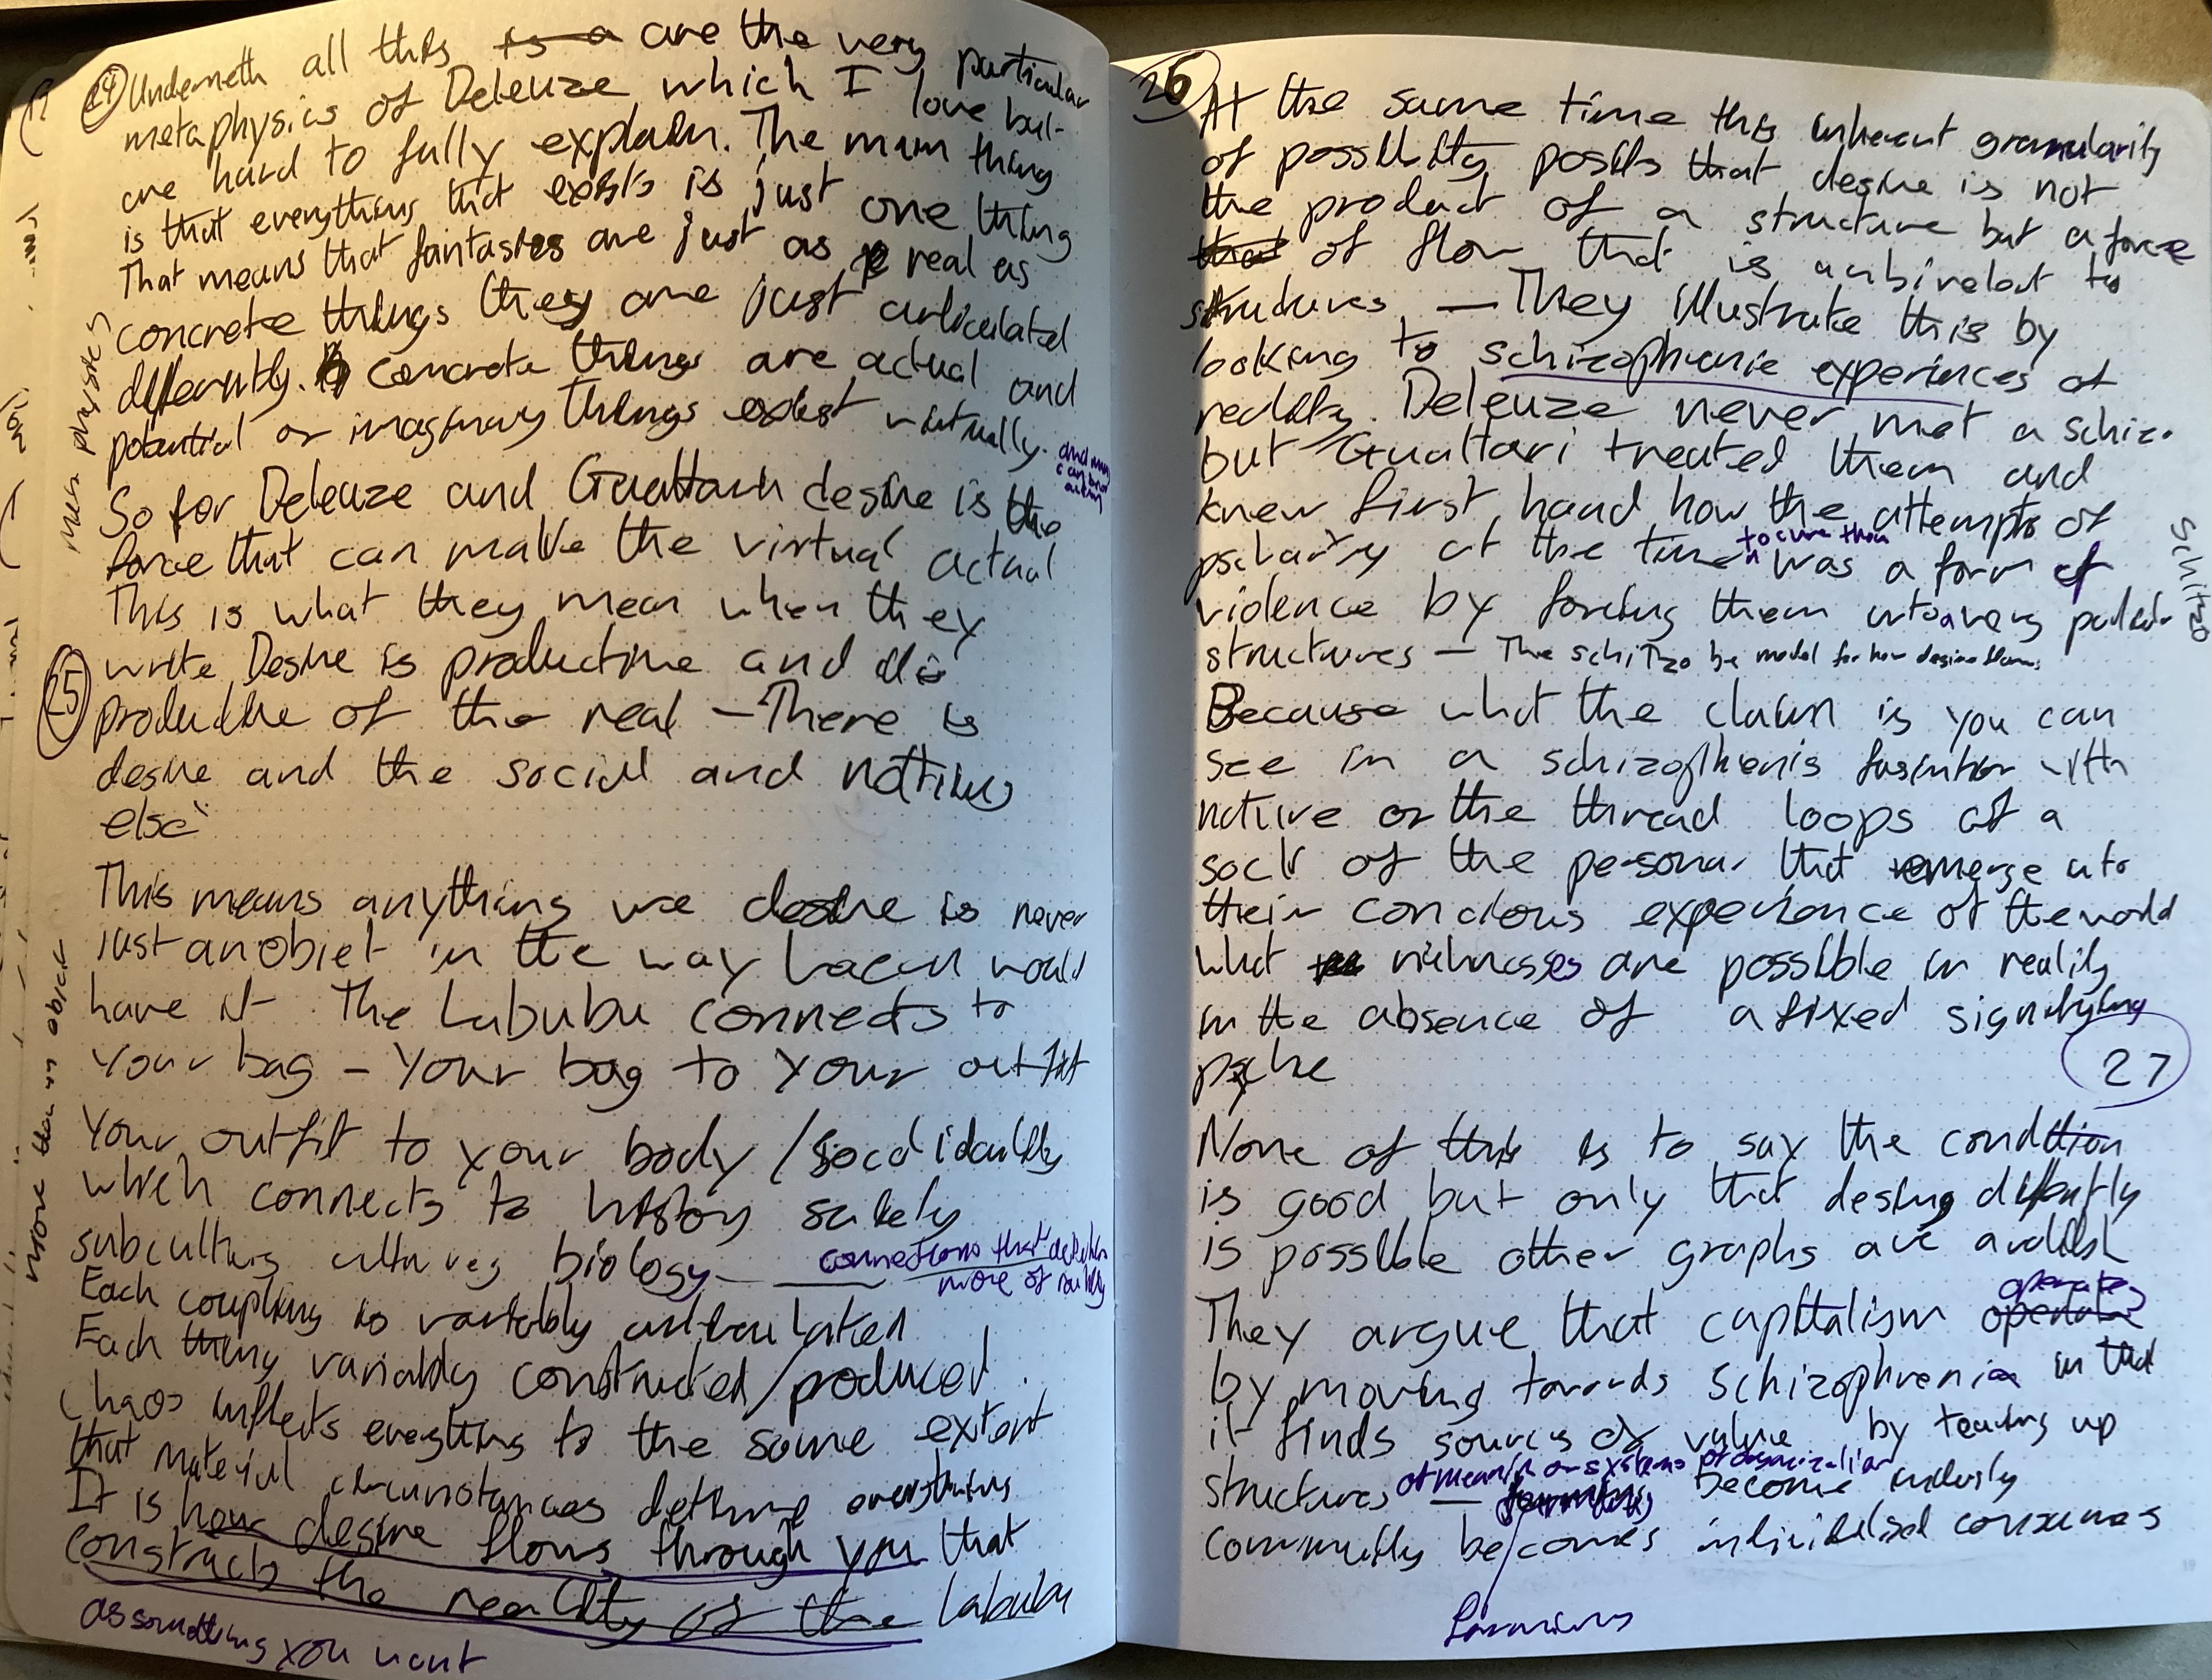 24 Underneth all this is a are the very particular
metaphysics of Deleuze which I love but
are hard to fully explain. The main thing
is that everything that exists is just one thing
That means that fantasies are just as real as
concrete things they are just articulated
differently. concrete things are actual and
potential or imaginary things exist virtually.
So for Deleuze and Guattari desire is the
force that can make the virtual actual
This is what they mean when they
write Desire is productive and
25 productive of the real – There is
desire and the social and nothing
else
metaphysics
This means anything we desire is never
just an object in the way Lacan would
have it The Labubu connects to
Your bag – Your bag to your outfit
Your outfit to your body / social identity
which connects to history
subculture biology
connections that
more of reality
Each coupling is variably
Each thing variably constructed/produced
Chaos inflects everything to the same extent
that material circumstances everything
It is how desire flows through you that
constructs the reality of the Labubu
as something you want
more than an object
26 At the same time this inherent granularity
of possibility posits that desire is not
the product of a structure but a force
that of flow that is ambivelent to
structures – They illustrate this by
looking to schizophrenic experinces of
reality. Deleuze never met a schizo
but Guattari treated them and
knew first hand how the attempts of
at the time to cure them was a form of
violence by forcing them into a very
structures – The schitzo be model for how desire flows
schitzo
Because what the claim is you can
see in a schizophrenis with
nature or the thread loops of a
sock of the personas that emerge into
their concious experience of the world
what richnesses are possible in reality
in the absence of a fixed signifying
psche
27
None of this is to say the condition
is good but only that desiring differently
is possible other graphs are
They argue that capitalism operate operates
by moving towards Schizophrenia in that
it finds sources of value by tearing up
structures of meaning or systems of organization
– become
Community becomes individulised consumers